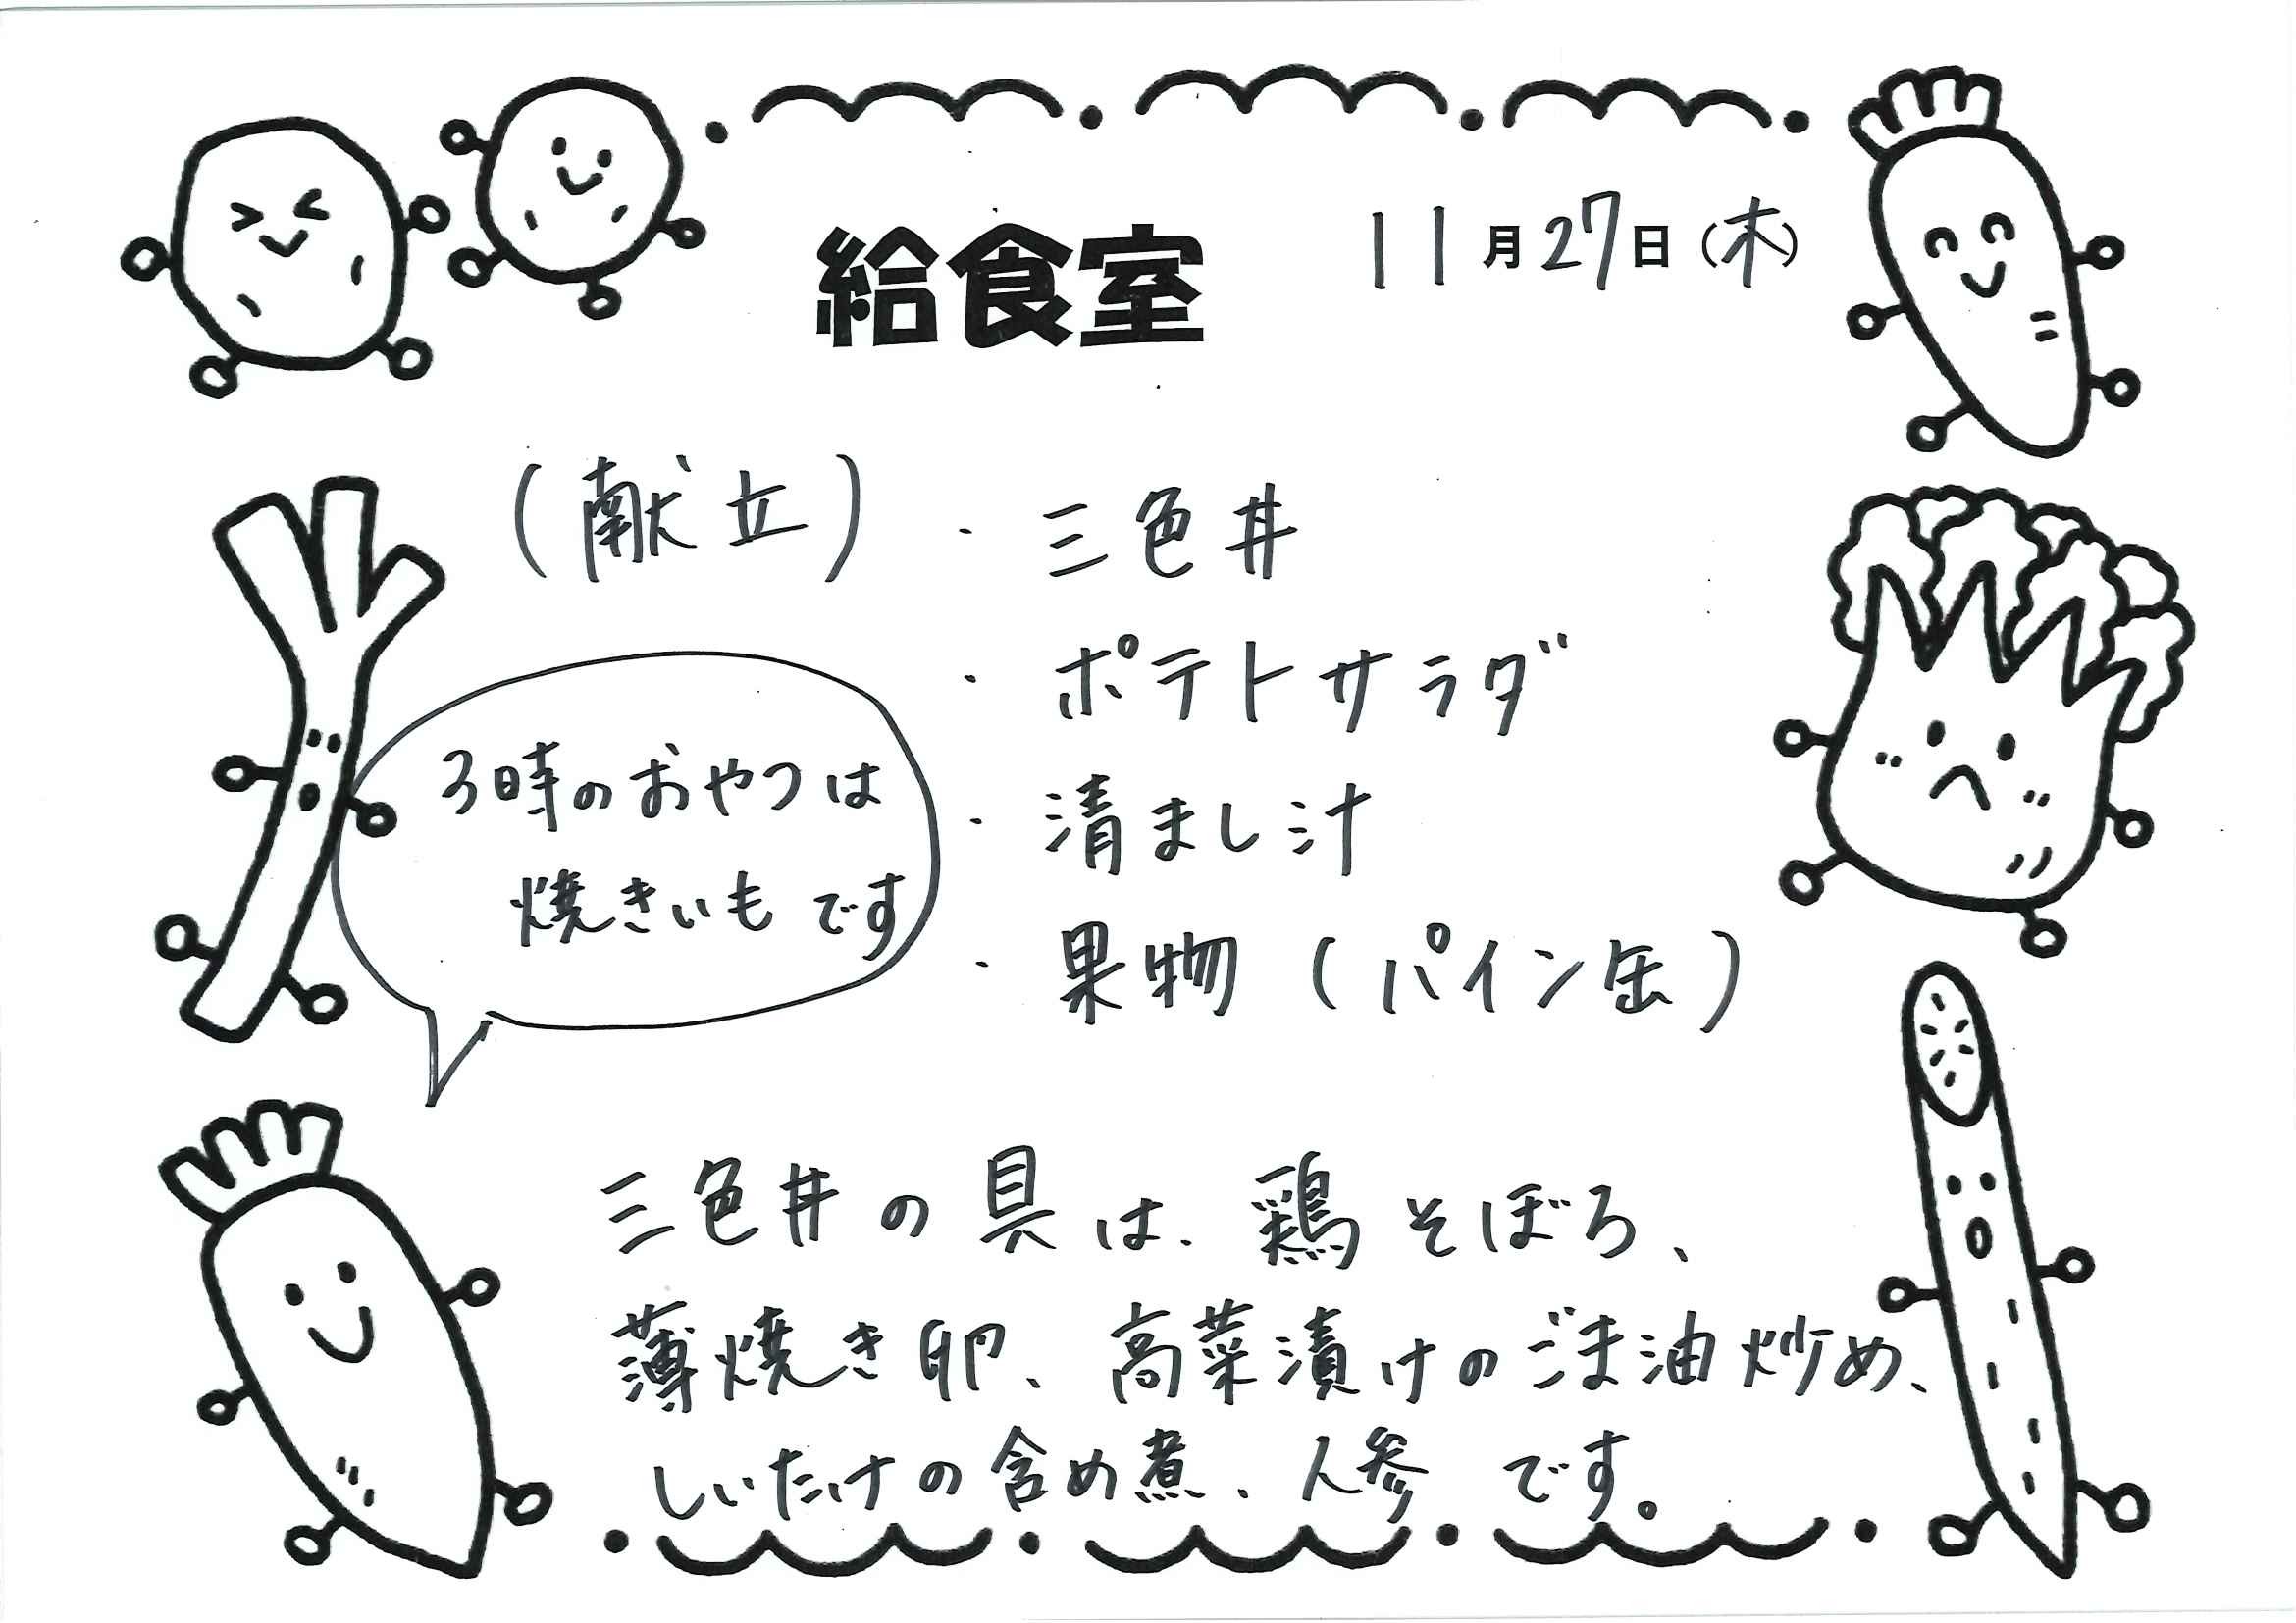 給食室
11月27日(木)
(献立)・三色丼
・ポテトサラダ
・清まし汁
・果物(パイン缶)
3時のおやつは
焼きいもです
三色丼の具は、鶏そぼろ、
薄焼き卵、高菜漬けのごま油炒め、
しいたけの含め煮、人参です。